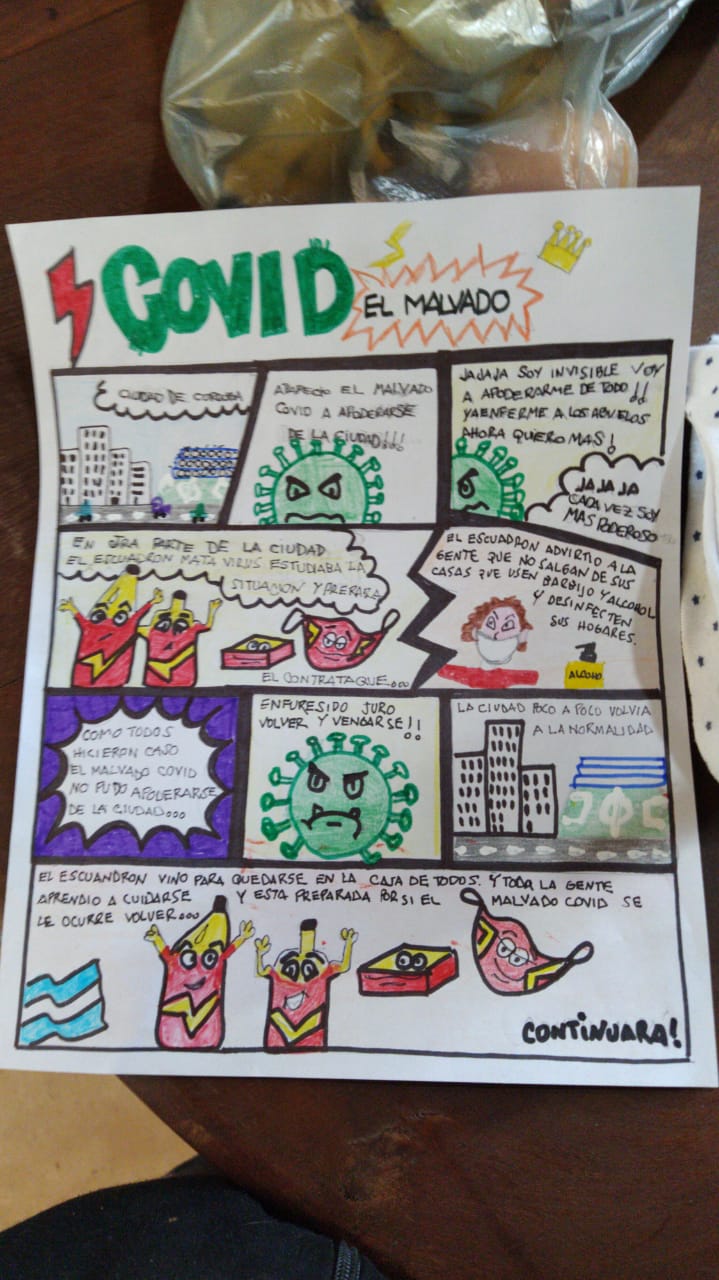 COVID
EL MALVADO
CIUDAD DE CORDOBA
APARECIO EL MALVADO
COVID A APODERARSE
DE LA CIUDAD!!!
JAJAJA SOY INVISIBLE VOY
A APODERARME DE TODO!!
YA ENFERME A LOS ABUELOS
AHORA QUIERO MAS!
JAJAJA
CADA VEZ SOY
MAS PODEROSO
EN OTRA PARTE DE LA CIUDAD
EL ESCUADRON MATA VIRUS ESTUDIABA LA
SITUACION Y PREPARA
EL CONTRATAQUE...
EL ESCUADRON ADVIRTIO A LA
GENTE QUE NO SALGAN DE SUS
CASAS QUE USEN BARBIJO Y ALCOHOL
Y DESINFECTEN
SUS HOGARES.
ALCOHO
COMO TODOS
HICIERON CASO
EL MALVADO COVID
NO PUDO APODERARSE
DE LA CIUDAD...
ENFURESIDO JURO
VOLVER Y VENGARSE!!
LA CIUDAD POCO A POCO VOLVIA
A LA NORMALIDAD
EL ESCUANDRON VINO PARA QUEDARSE EN LA CASA DE TODOS. Y TODA LA GENTE
APRENDIO A CUIDARSE Y ESTA PREPARADA POR SI EL MALVADO COVID SE
LE OCURRE VOLVER...
CONTINUARA!